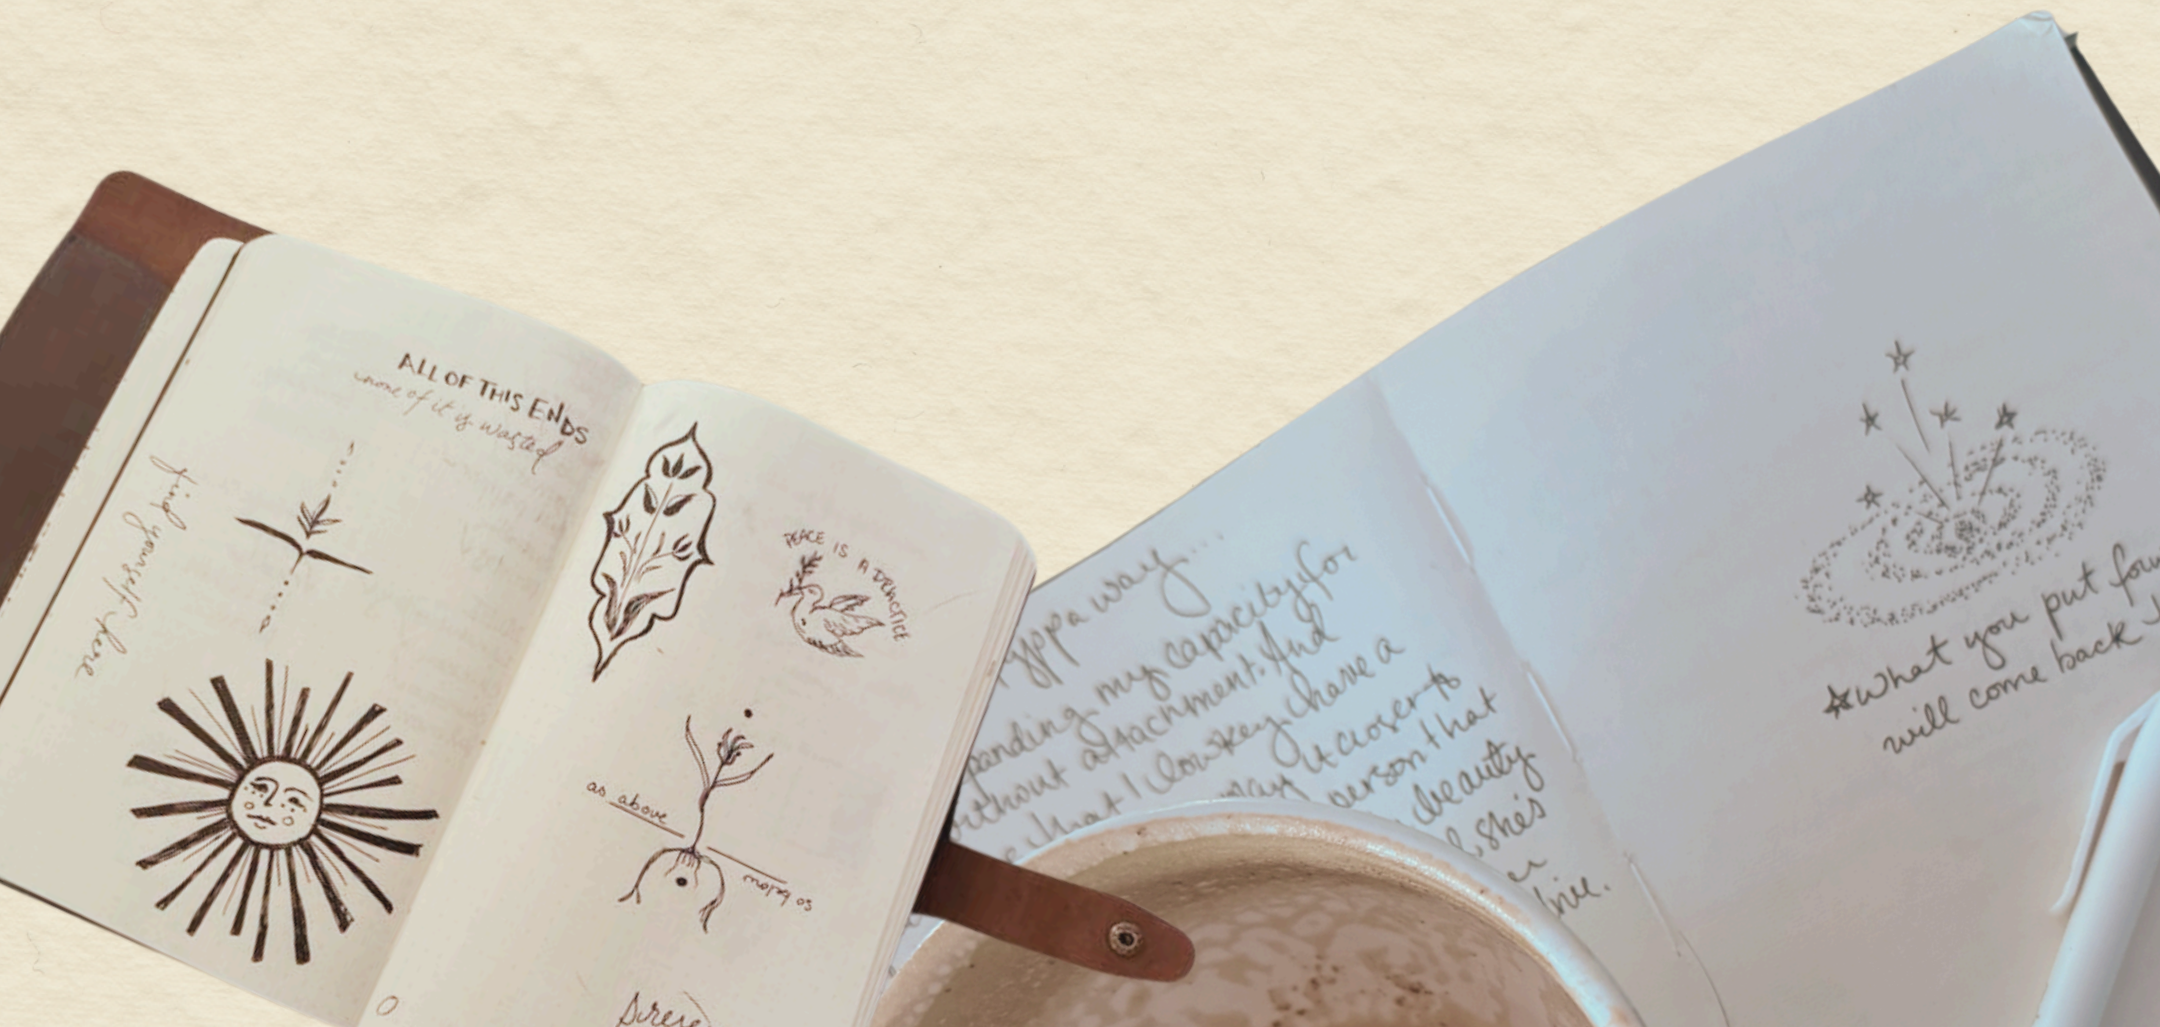 ALL OF THIS ENDS
none of it is wasted
find yourself here
PEACE IS A PRACTICE
as above
so below
way...
panding my capacity for
without attachment. And
that I lowkey have a
way it closer to
person that
beauty
she's
What you put
will come back